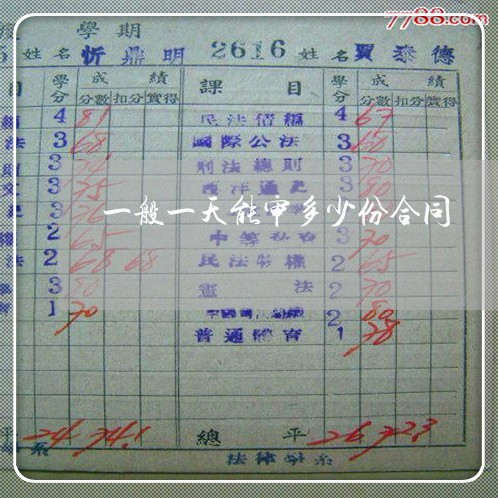 7788.com
學期
5 姓名 忻鼎明 2616 姓名 賈泰德
目 學分 成績 課目 學分 成績
分數 扣分 實得 分數 扣分 實得
4 81 民法債編 4 67
法 3 68 國際公法 3 60
3 刑法總則 3 70
文 3 75 西洋通史 3 80
3 76 3
一般一天能审多少份合同
權 2 65 3 70
法 2 68 68 民法物權 2 65
3 80 憲法 2 70
1 70 2 80
普通體育 1 78
平 24 74.1 總平 26 72.3
系 法律學系